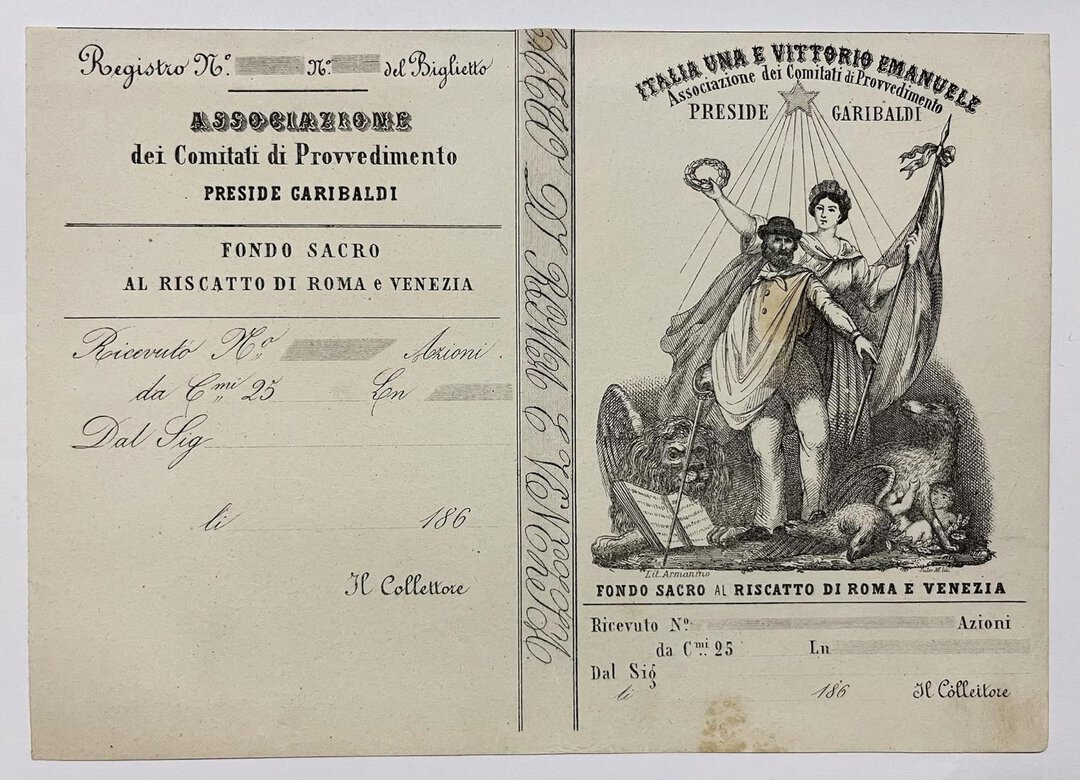 Registro N.º N.º del Biglietto
ASSOCIAZIONE
dei Comitati di Provvedimento
PRESIDE GARIBALDI
FONDO SACRO
AL RISCATTO DI ROMA e VENEZIA
Ricevuto N.º Azioni.
da C.mi 25 Ln
Dal Sig
li 186
Il Collettore
DI ROMA E VENEZIA
ITALIA UNA E VITTORIO EMANUELE
Associazione dei Comitati di Provvedimento
PRESIDE GARIBALDI
Lit. Armanino
FONDO SACRO AL RISCATTO DI ROMA E VENEZIA
Ricevuto N.º Azioni
da C.mi 25 Ln
Dal Sig
li 186 Il Collettore